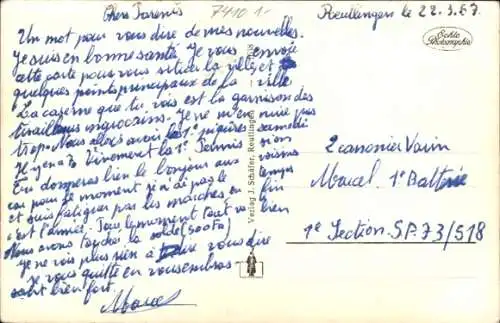 Chers Parents
7410 1-
Reutlingen le 22.3.57
Un mot pour vous dire de mes nouvelles.
Je suis en bonne santé. Je vous envoie
cette carte pour vous situer la ville et
quelques points principaux de la ville
La caserne que tu vois est la garnison des
tirailleurs marocains. Je ne m'ennuie pas
trop. Nous allons avoir la 1º piqûre samedi
Il y en a
Tu donneras bien le bonjour aux voisins
car pour le moment j'ai pas le temps
et suis fatiguer par les marches enfin
c'est l'armée. Tous le moment tout va bien
Nous avons toucher la solde (500 Fr)
Je ne vois plus rien à vous dire
Je vous quitte en vous embras-
sant bien fort.
Marcel
Echte
Photographie
Verlag J. Schäfer, Reutlingen
2 canonier Varin
Marcel 1º Batterie
1º Section S.P. 73/518